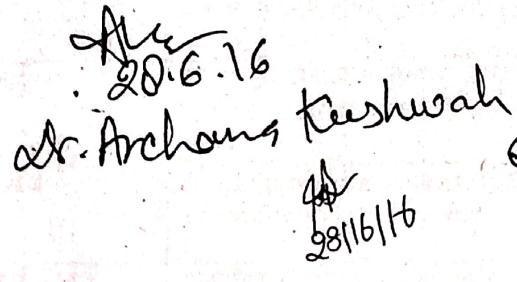 28.6.16
Dr. Archana Kushwah
28/16/16